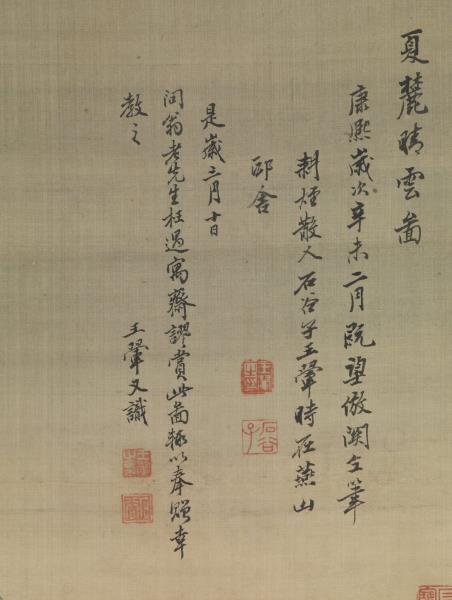 夏麓晴雲圖
康熙歲次辛未二月既望倣關仝筆
耕煙散人石谷子王翬時在燕山
邸舍
石谷子
是歲三月十日
問翁老先生枉過寓齋謬賞此圖輙以奉贈幸
教之
王翬又識